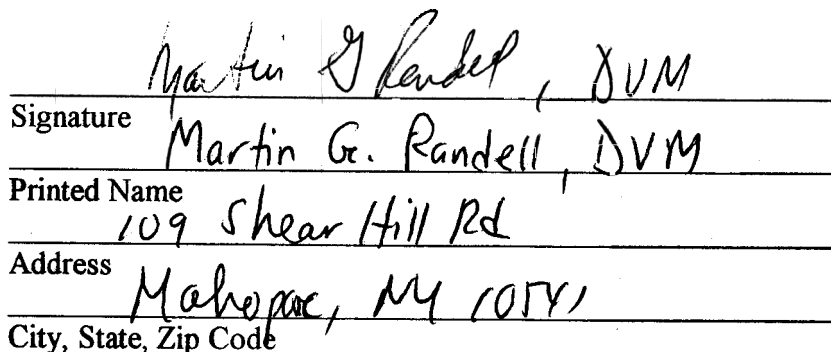 Martin G Randell, DVM
Signature
Martin G. Randell, DVM
Printed Name
109 Shear Hill Rd
Address
Mahopac, NY 10541
City, State, Zip Code